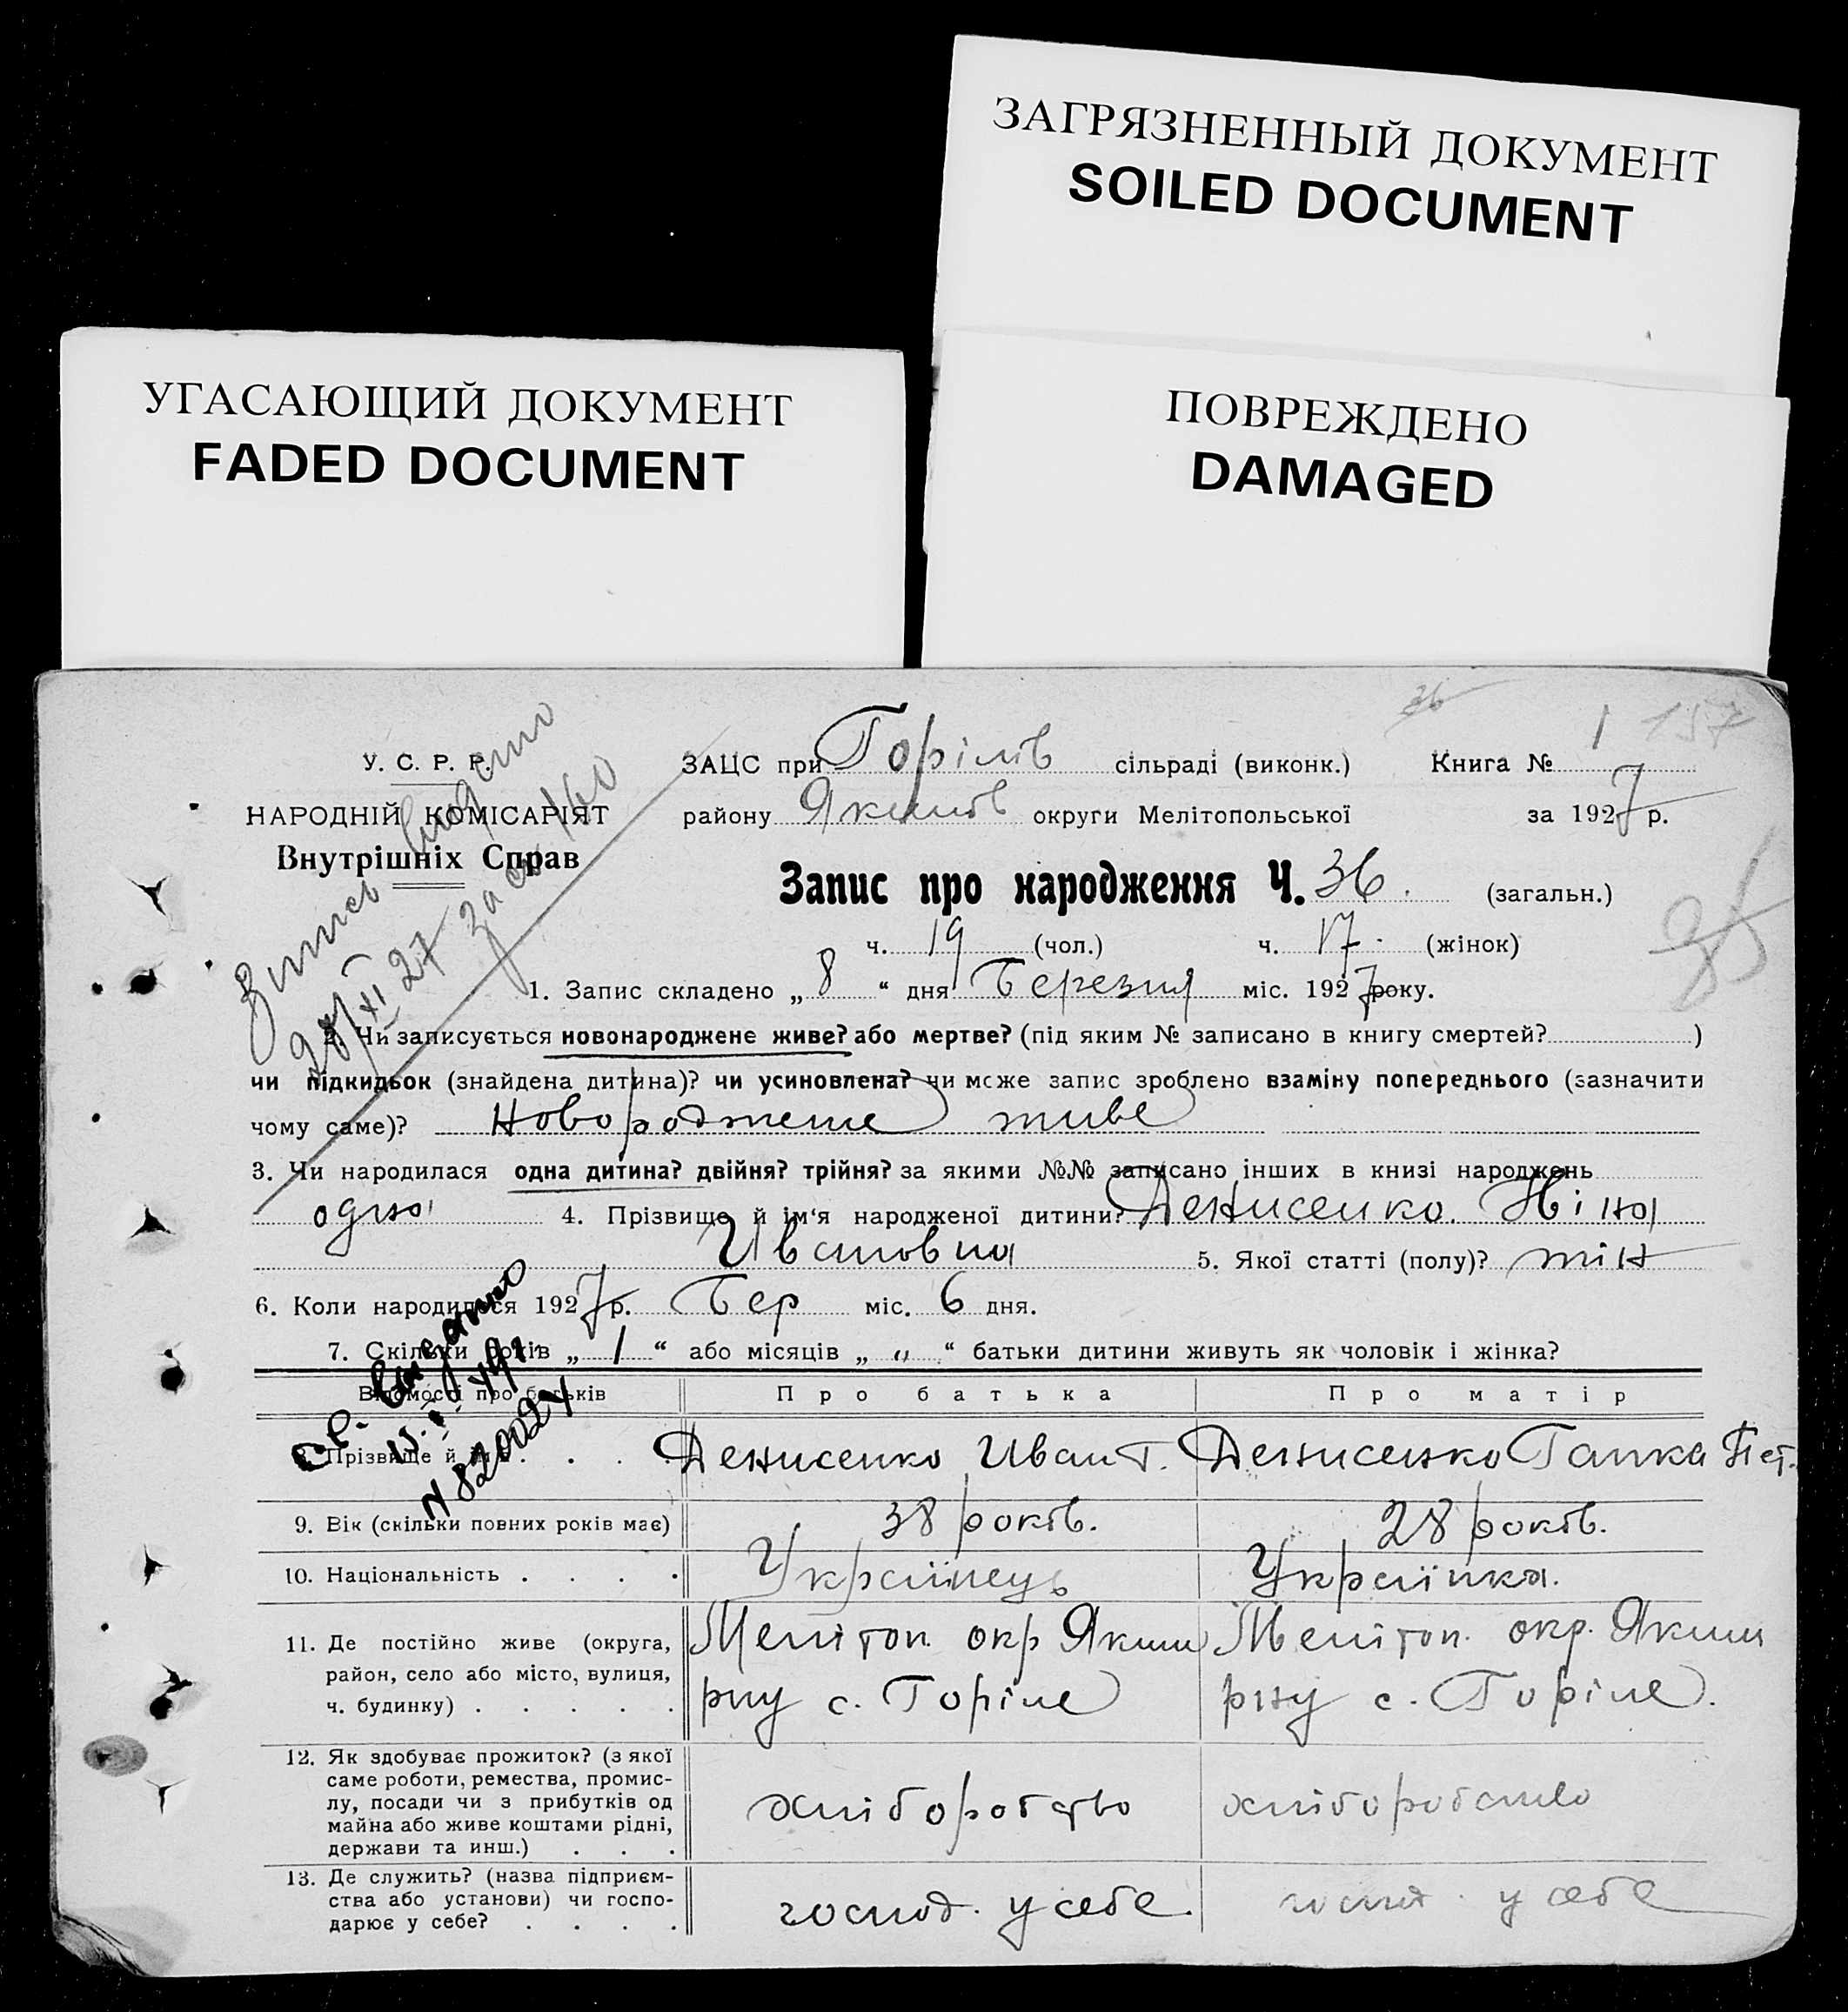 ЗАГРЯЗНЕННЫЙ ДОКУМЕНТ
SOILED DOCUMENT
УГАСАЮЩИЙ ДОКУМЕНТ
FADED DOCUMENT
ПОВРЕЖДЕНО
DAMAGED
36
157
У. С. Р. Р.
НАРОДНІЙ КОМІСАРІЯТ
Внутрішніх Справ
ЗАЦС при Горілів сільраді (виконк.) Книга № 1
району Якимів округи Мелітопольської за 1927 р.
Запис про народження Ч. 36. (загальн.)
ч. 19 (чол.) ч. 17. (жінок)
1. Запис складено „ 8 “ дня Березня міс. 1927 року.
2. Чи записується новонароджене живе? або мертве? (під яким № записано в книгу смертей? )
чи підкидьок (знайдена дитина)? чи усиновлена? чи може запис зроблено взаміну попереднього (зазначити
чому саме)? Новороджене живе
3. Чи народилася одна дитина? двійня? трійня? за якими №№ записано інших в книзі народжень
одно 4. Прізвище й ім'я народженої дитини? Денисенко. Ніна
Ивановна 5. Якої статті (полу)? жін
6. Коли народилося 1927 р. Бер міс. 6 дня.
7. Скільки років „ 1 “ або місяців „ „ “ батьки дитини живуть як чоловік і жінка?
Відомості про батьків Про батька Про матір
8. Прізвище й ім'я . . . Денисенко Иван Т. Денисенко Ганка Пет.
9. Вік (скільки повних років має) 38 років. 28 років.
10. Національність . . . . Українець Українка.
11. Де постійно живе (округа, район, село або місто, вулиця, ч. будинку) . . . . . Мелітоп. окр Яким рну с. Горіле Мелітоп. окр. Яким рну с. Горіле.
12. Як здобуває прожиток? (з якої саме роботи, ремества, промислу, посади чи з прибутків од майна або живе коштами рідні, держави та инш.) . . . хліборобство хліборобство
13. Де служить? (назва підприємства або установи) чи господарює у себе? . . . . господ. у себе. господ. у себе